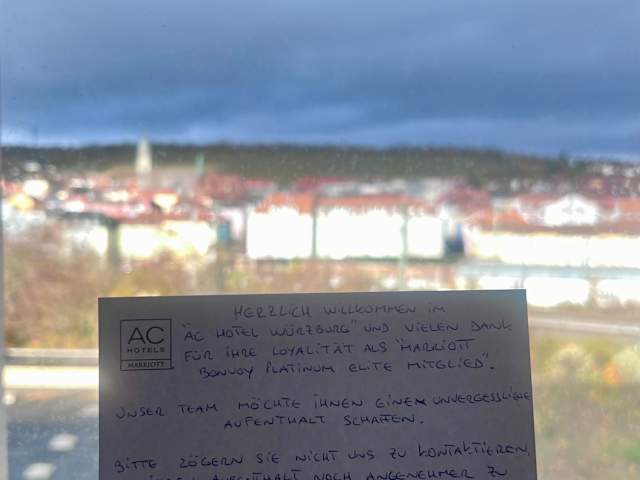 AC
HOTELS
MARRIOTT
HERZLICH WILLKOMMEN IM
"AC HOTEL WÜRZBURG" UND VIELEN DANK
FÜR IHRE LOYALITÄT ALS "MARRIOTT
BONVOY PLATINUM ELITE MITGLIED".
UNSER TEAM MÖCHTE IHNEN EINEN UNVERGESSLICHEN
AUFENTHALT SCHAFFEN.
BITTE ZÖGERN SIE NICHT UNS ZU KONTAKTIEREN,
AUFENTHALT NOCH ANGENEHMER ZU